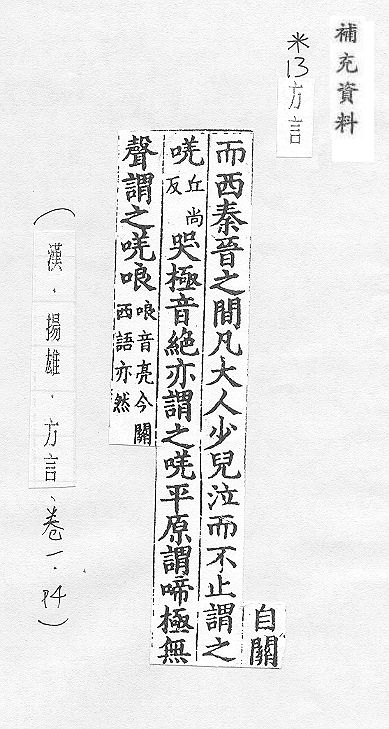 補充資料
米13方言
自關
而西秦晉之間凡大人少兒泣而不止謂之
唴丘尚反哭極音絶亦謂之唴平原謂啼極無
聲謂之唴哴哴音亮今關西語亦然
(漢．揚雄．方言、卷一．P4)